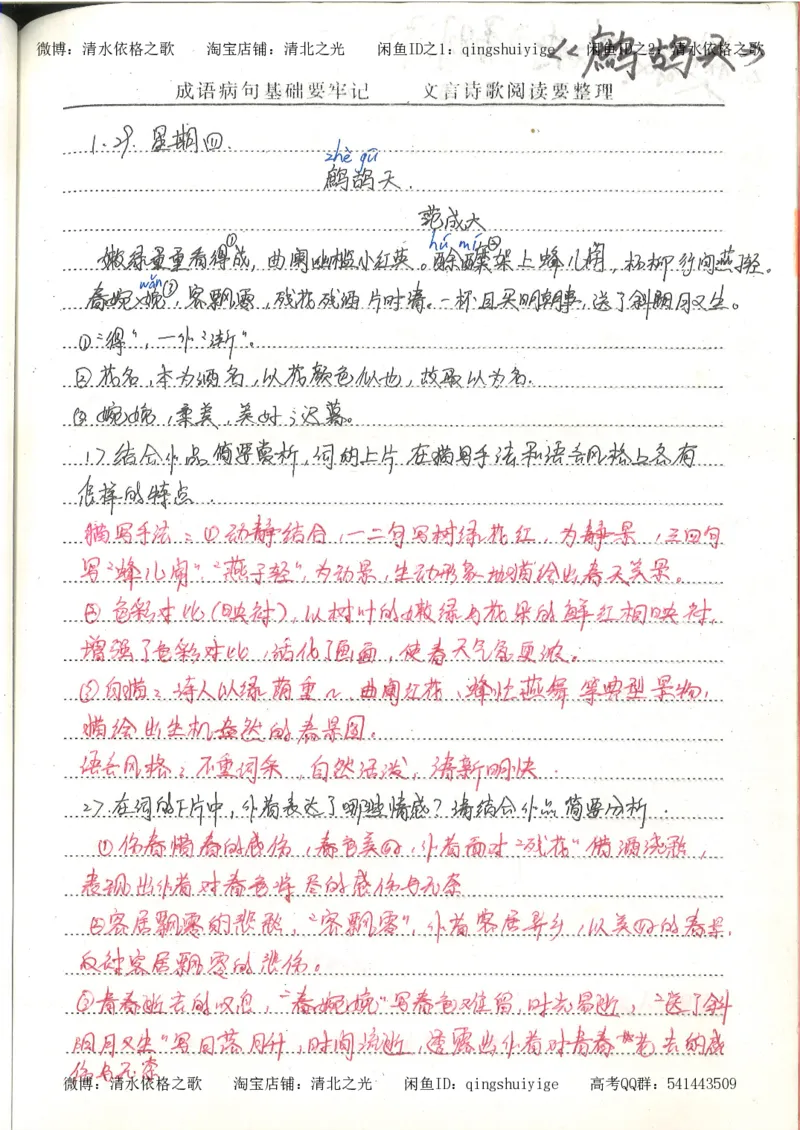 微博：清水依格之歌 淘宝店铺：清北之光 闲鱼ID之1：qingshuiyige 闲鱼ID之2：清水依格之歌
《鹧鸪天》
成语病句基础要牢记 文言诗歌阅读要整理
1.29. 星期四.
zhè gū
鹧鸪天.
范成大
hú mí
嫩绿重重看得①成，曲阑幽槛小红英。酴醾②架上蜂儿闹，杨柳行间燕子轻。
wǎn
春婉娩③，客飘零，残花残酒片时清。一杯且买明朝事，送了斜阳月又生。
①"得"，一作"渐"。
②花名，本为酒名，以花颜色似之，故取以为名.
③婉娩，柔美，美好；迟暮。
1>结合作品简要赏析，词的上片在描写手法和语言风格上各有
怎样的特点.
描写手法：①动静结合，一二句写树绿花红，为静景，三四句
写"蜂儿闹""燕子轻"，为动景，生动形象地描绘出春天美景。
②色彩对比（映衬），以树叶的嫩绿与花朵的鲜红相映衬，
增强了色彩对比，活化了画面，使春天气息更浓。
③白描：诗人以绿荫重重、曲阑红花、蜂忙燕舞等典型景物，
描绘出生机盎然的春景图。
语言风格：不重词采，自然活泼，清新明快.
2>.在词的下片中，作者表达了哪些情感？请结合作品简要分析.
①伤春惜春的感伤，春色美好，作者面对"残花"借酒浇愁，
表现出作者对春色将尽的感伤与无奈
②客居飘零的悲愁，"客飘零"，作者客居异乡，以美好的春景，
反衬客居飘零的悲伤。
③青春逝去的叹息，"春婉娩"写春色难留，时光易逝，"送了斜
阳月又生"写日落月升，时间流逝，透露出作者对青春老去的感
伤与无奈
微博：清水依格之歌 淘宝店铺：清北之光 闲鱼ID：qingshuiyige 高考QQ群：541443509